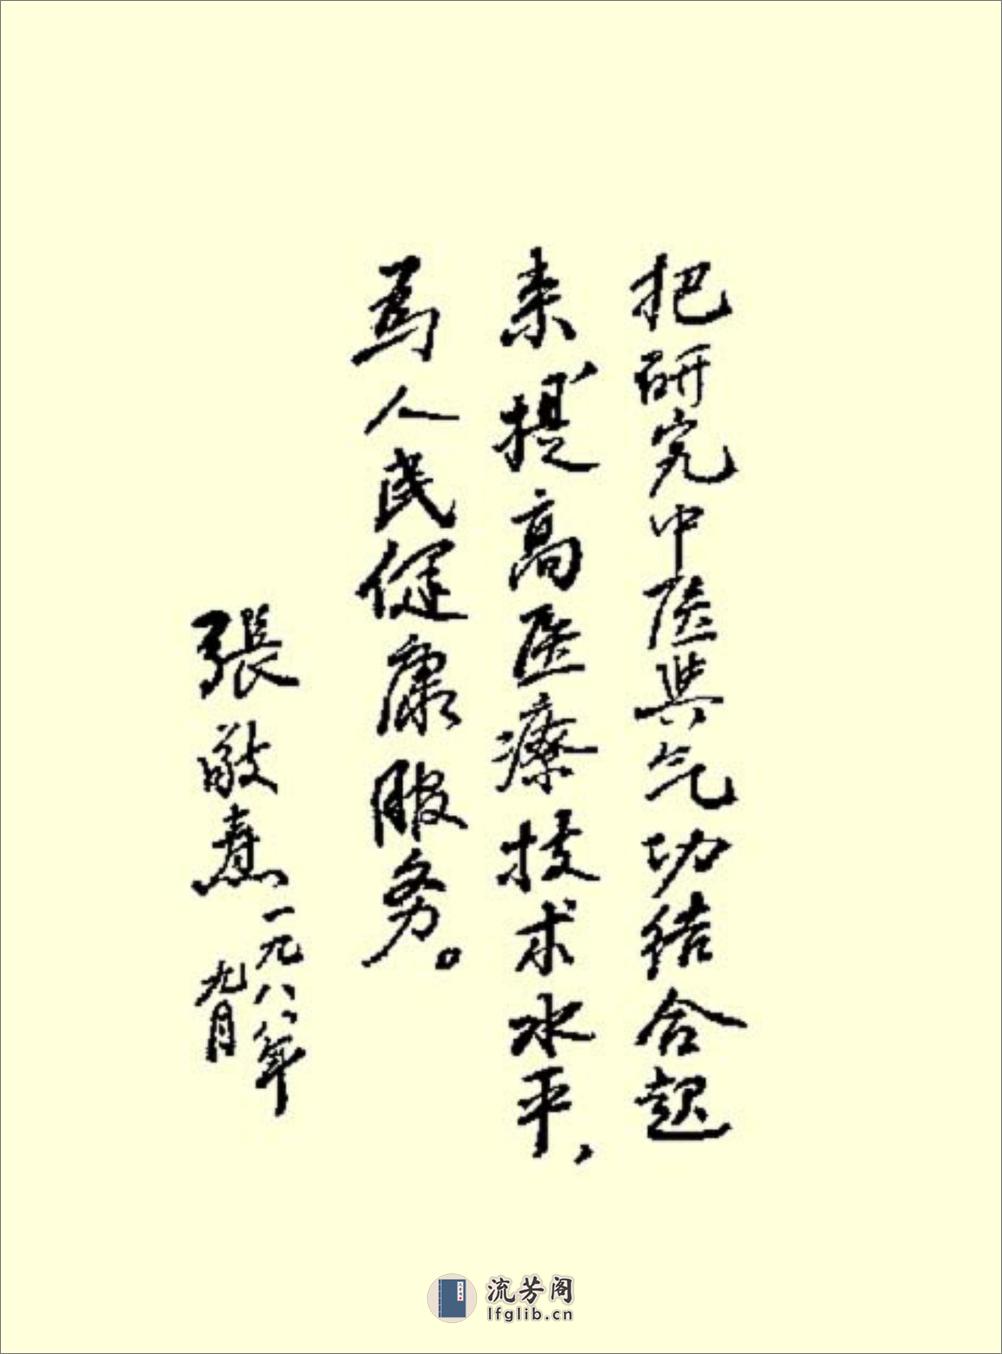 把研究中医與气功结合起
来,提高医療技术水平,
為人民健康服务。
張敬焘 一九八八年
九月
流芳阁
lfglib.cn